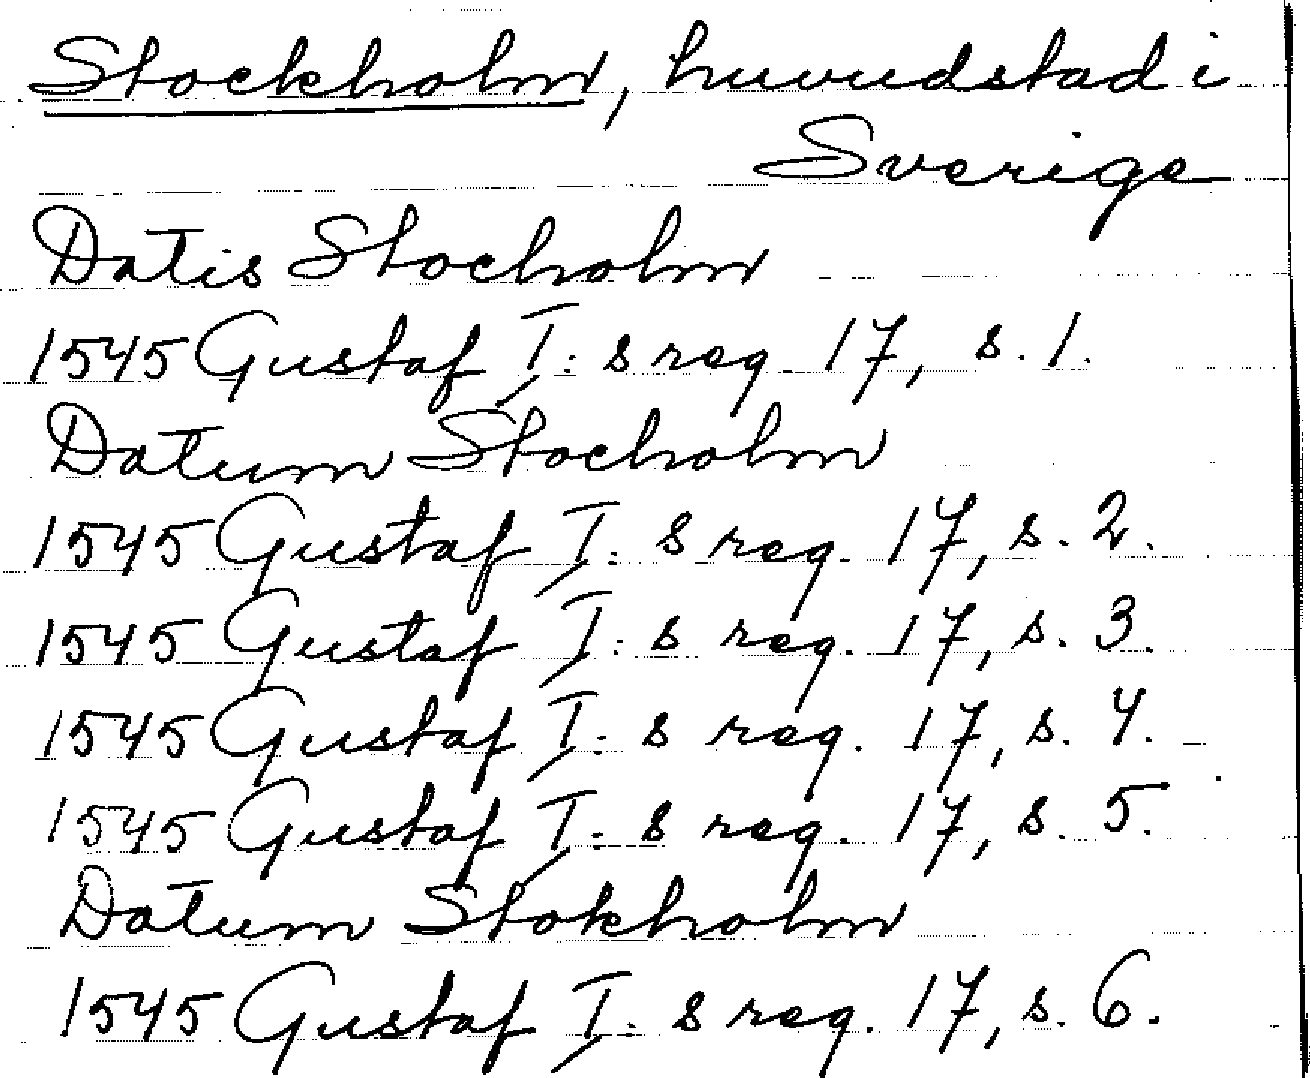 Stockholm, huvudstad i
Sverige
Datis Stocholm
1545 Gustaf I:s reg. 17, s. 1.
Datum Stocholm
1545 Gustaf I:s reg. 17, s. 2.
1545 Gustaf I:s reg. 17, s. 3.
1545 Gustaf I:s reg. 17, s. 4.
1545 Gustaf I:s reg. 17, s. 5.
Datum Stokholm
1545 Gustaf I:s reg. 17, s. 6.